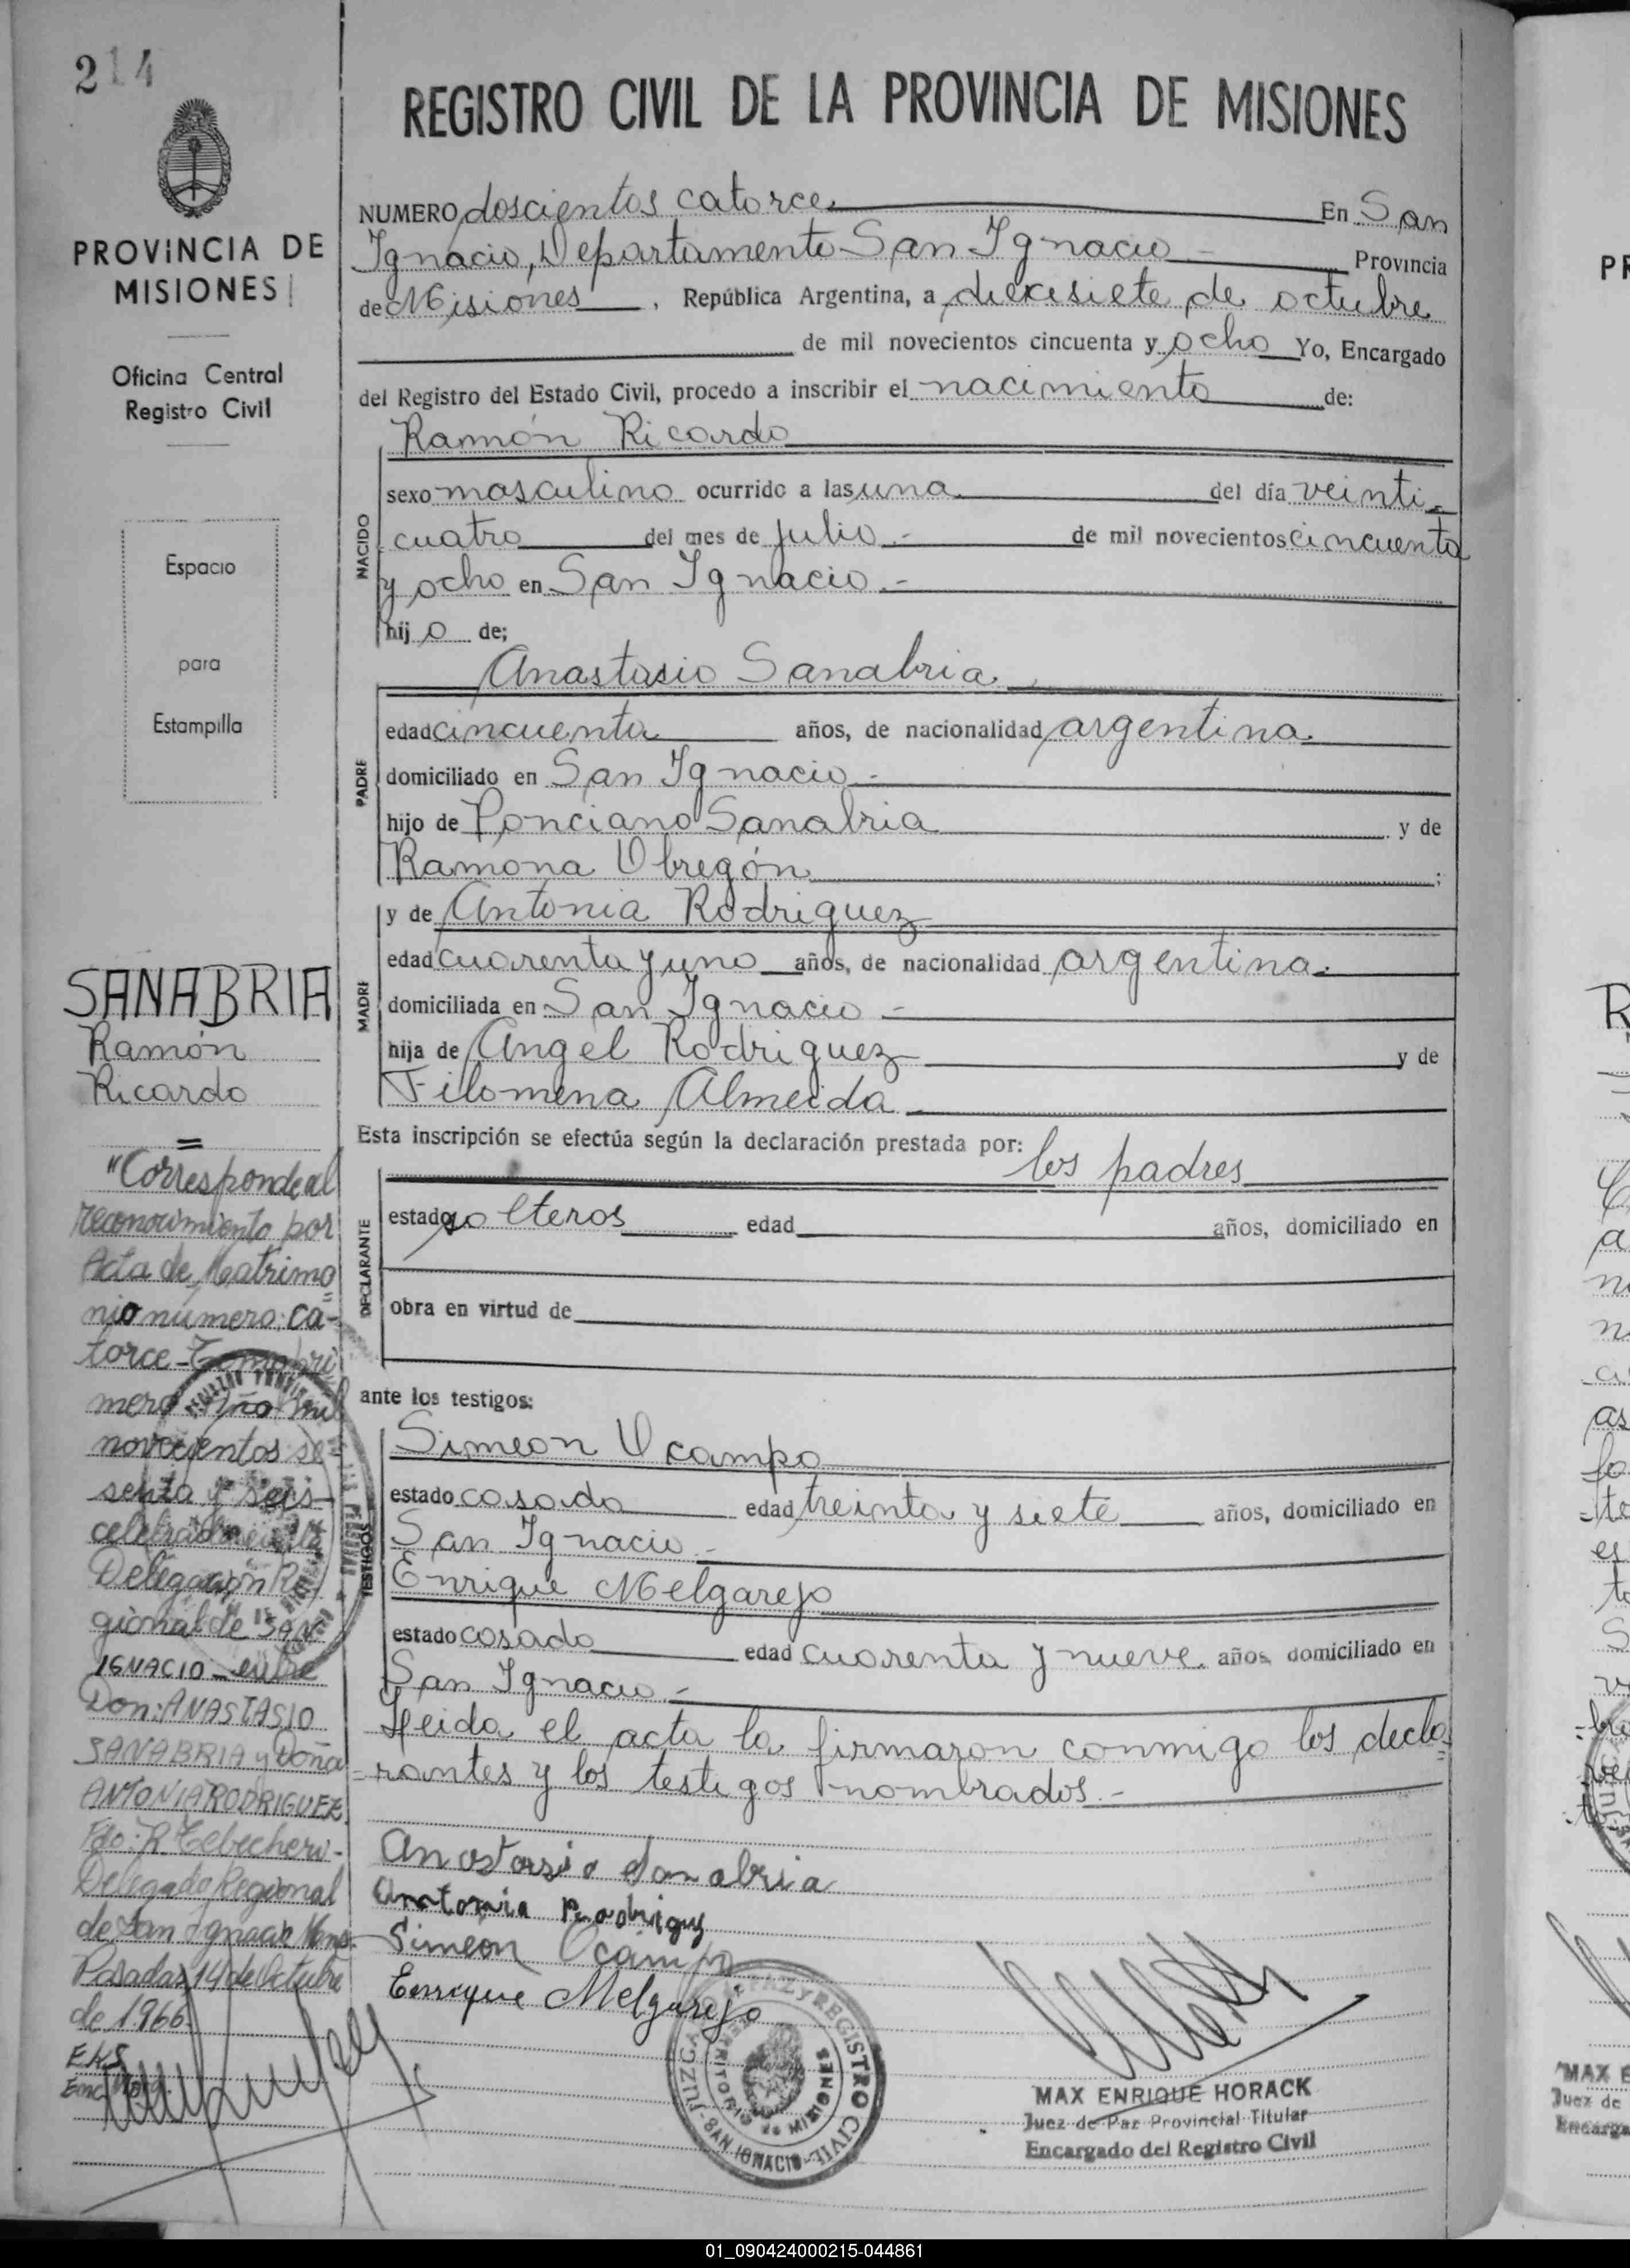 214
PROVINCIA DE
MISIONES
Oficina Central
Registro Civil
Espacio
para
Estampilla
SANABRIA
Ramón
Ricardo
=
"Corresponde al
reconocimiento por
Acta de Matrimo=
nio número: ca-
torce - Tomo pri
mero Año mil
novecientos se-
senta y seis -
celebrado en la
Delegación Re
gional de SAN
IGNACIO - entre
Don: ANASTASIO
SANABRIA y Doña
ANTONIA RODRIGUEZ
Fdo: R.
Delegado Regional
de San Ignacio Mnes.
Posadas, 14 de Octubre
de 1966.
EKS
REGISTRO CIVIL DE LA PROVINCIA DE MISIONES
NUMERO doscientos catorce En San
Ignacio, Departamento San Ignacio - Provincia
de Misiones , República Argentina, a diecisiete de octubre
de mil novecientos cincuenta y ocho Yo, Encargado
del Registro del Estado Civil, procedo a inscribir el nacimiento de:
Ramón Ricardo
NACIDO
sexo masculino ocurrido a las una del día veinti-
cuatro del mes de julio.- de mil novecientos cincuenta
y ocho en San Ignacio.-
hijo de;
Anastasio Sanabria
PADRE
edad cincuenta años, de nacionalidad argentina.
domiciliado en San Ignacio.-
hijo de Ponciano Sanabria y de
Ramona Obregón ;
MADRE
y de Antonia Rodriguez
edad cuarenta y uno años, de nacionalidad argentina.-
domiciliada en San Ignacio -
hija de Angel Rodriguez y de
Filomena Almeida
Esta inscripción se efectúa según la declaración prestada por: los padres
DECLARANTE
estado solteros edad años, domiciliado en
obra en virtud de
ante los testigos:
TESTIGOS
Simeon Ocampo
estado casado edad treinta y siete años, domiciliado en
San Ignacio -
Enrique Melgarejo
estado casado edad cuarenta y nueve años domiciliado en
San Ignacio.-
Leida el acta la firmaron conmigo los decla=
=rantes y los testigos nombrados.-
Anastasio Sanabria
Antonia Rodriguz
Simeón Ocampo
Enrique Melgarejo
JUZGADO DE PAZ Y REGISTRO CIVIL
TERRITORIO DE MISIONES
SAN IGNACIO
MAX ENRIQUE HORACK
Juez de Paz Provincial Titular
Encargado del Registro Civil
01_090424000215-044861